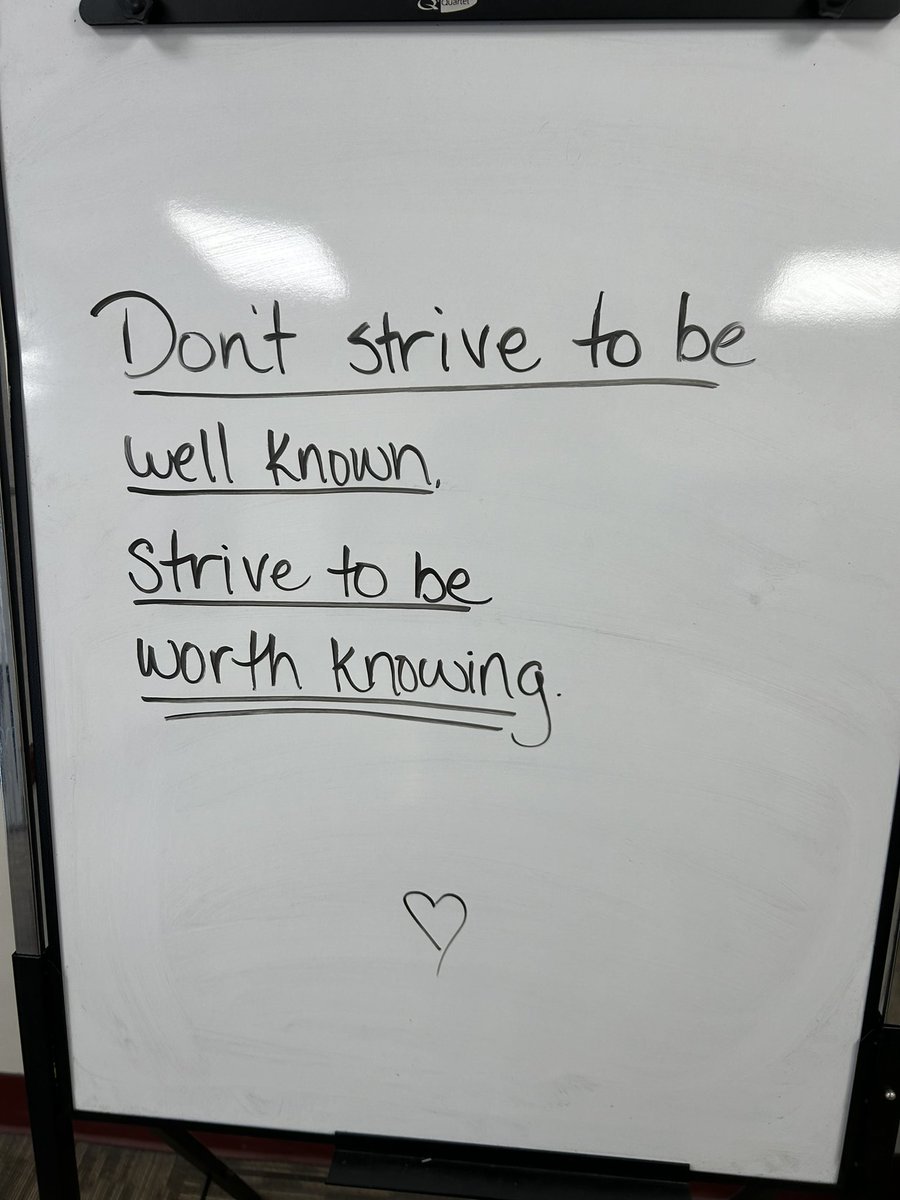 Quartet
Don't strive to be
well known.
Strive to be
worth knowing.